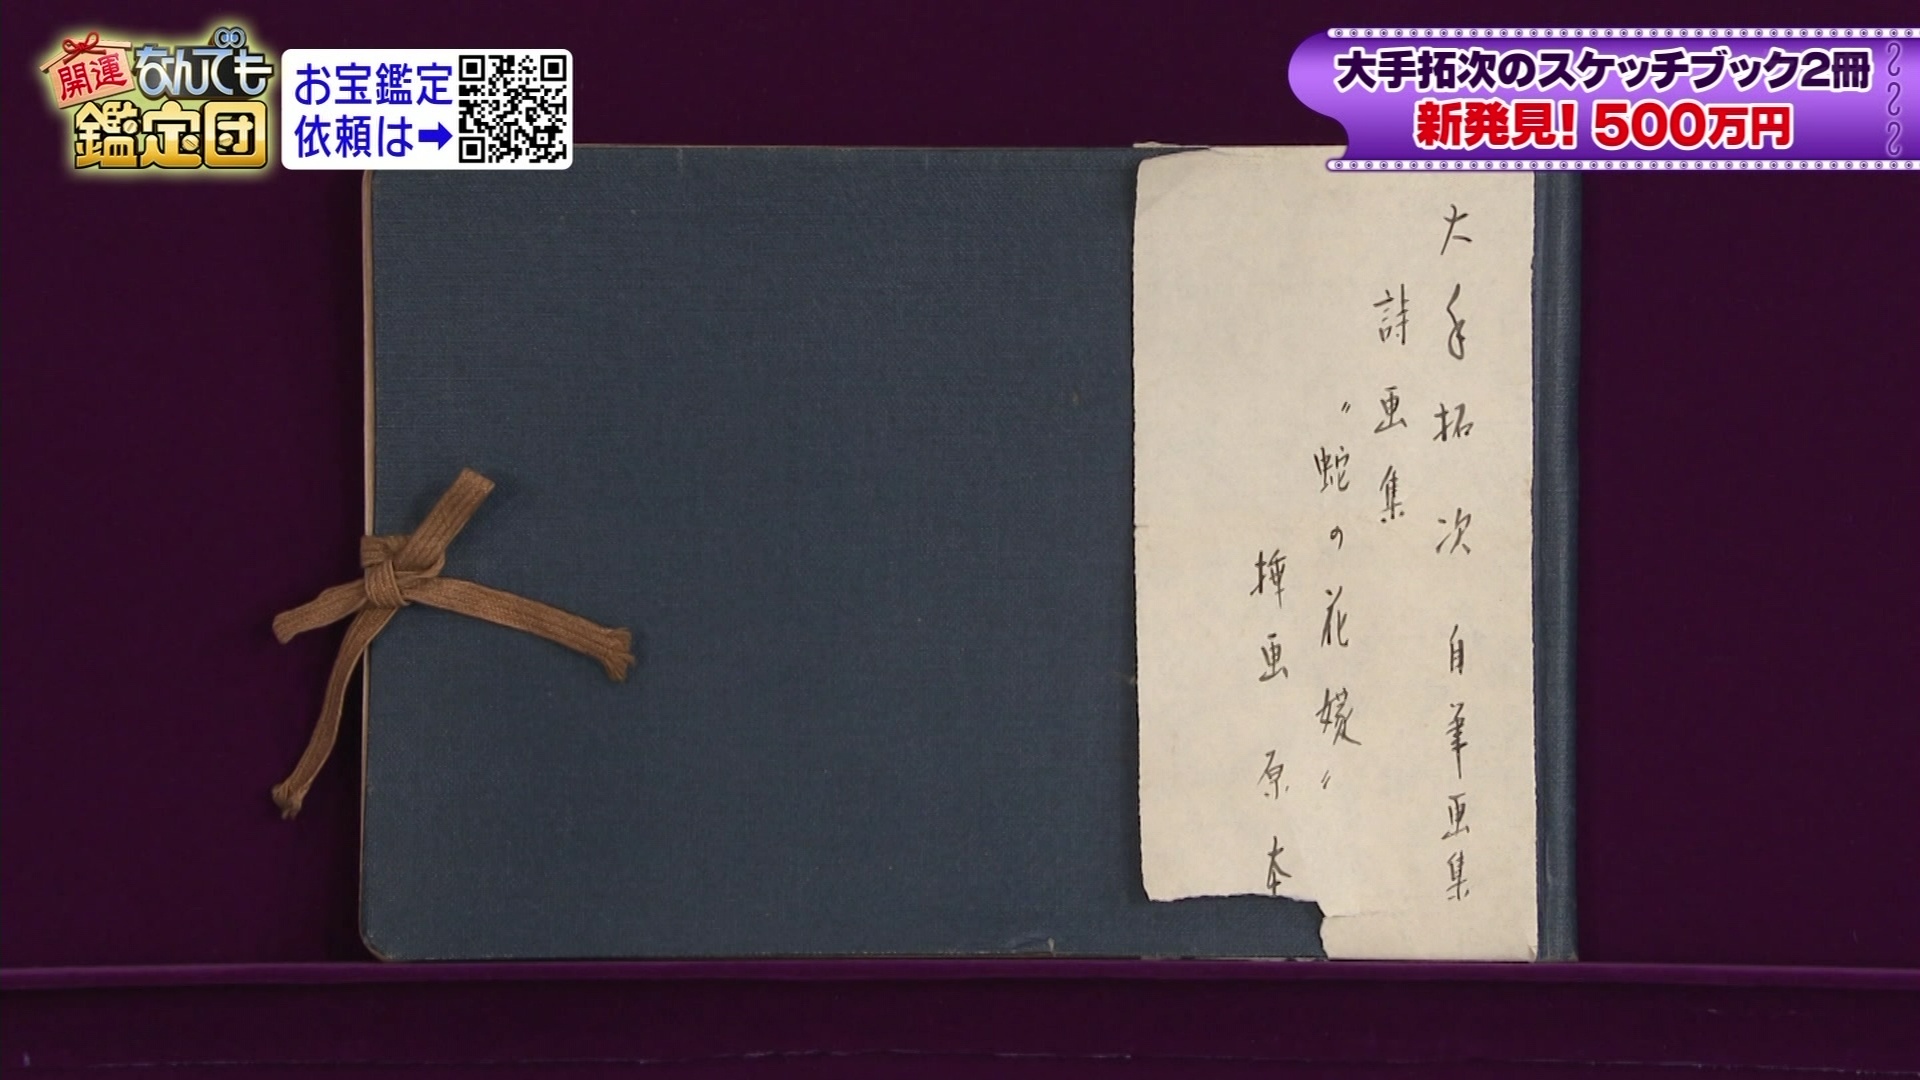 開運
なんでも
鑑定団
お宝鑑定
依頼は➡
大手拓次のスケッチブック2冊
新発見！500万円
大手拓次 自筆画集
詩画集
〝蛇の花嫁〟
挿画原本